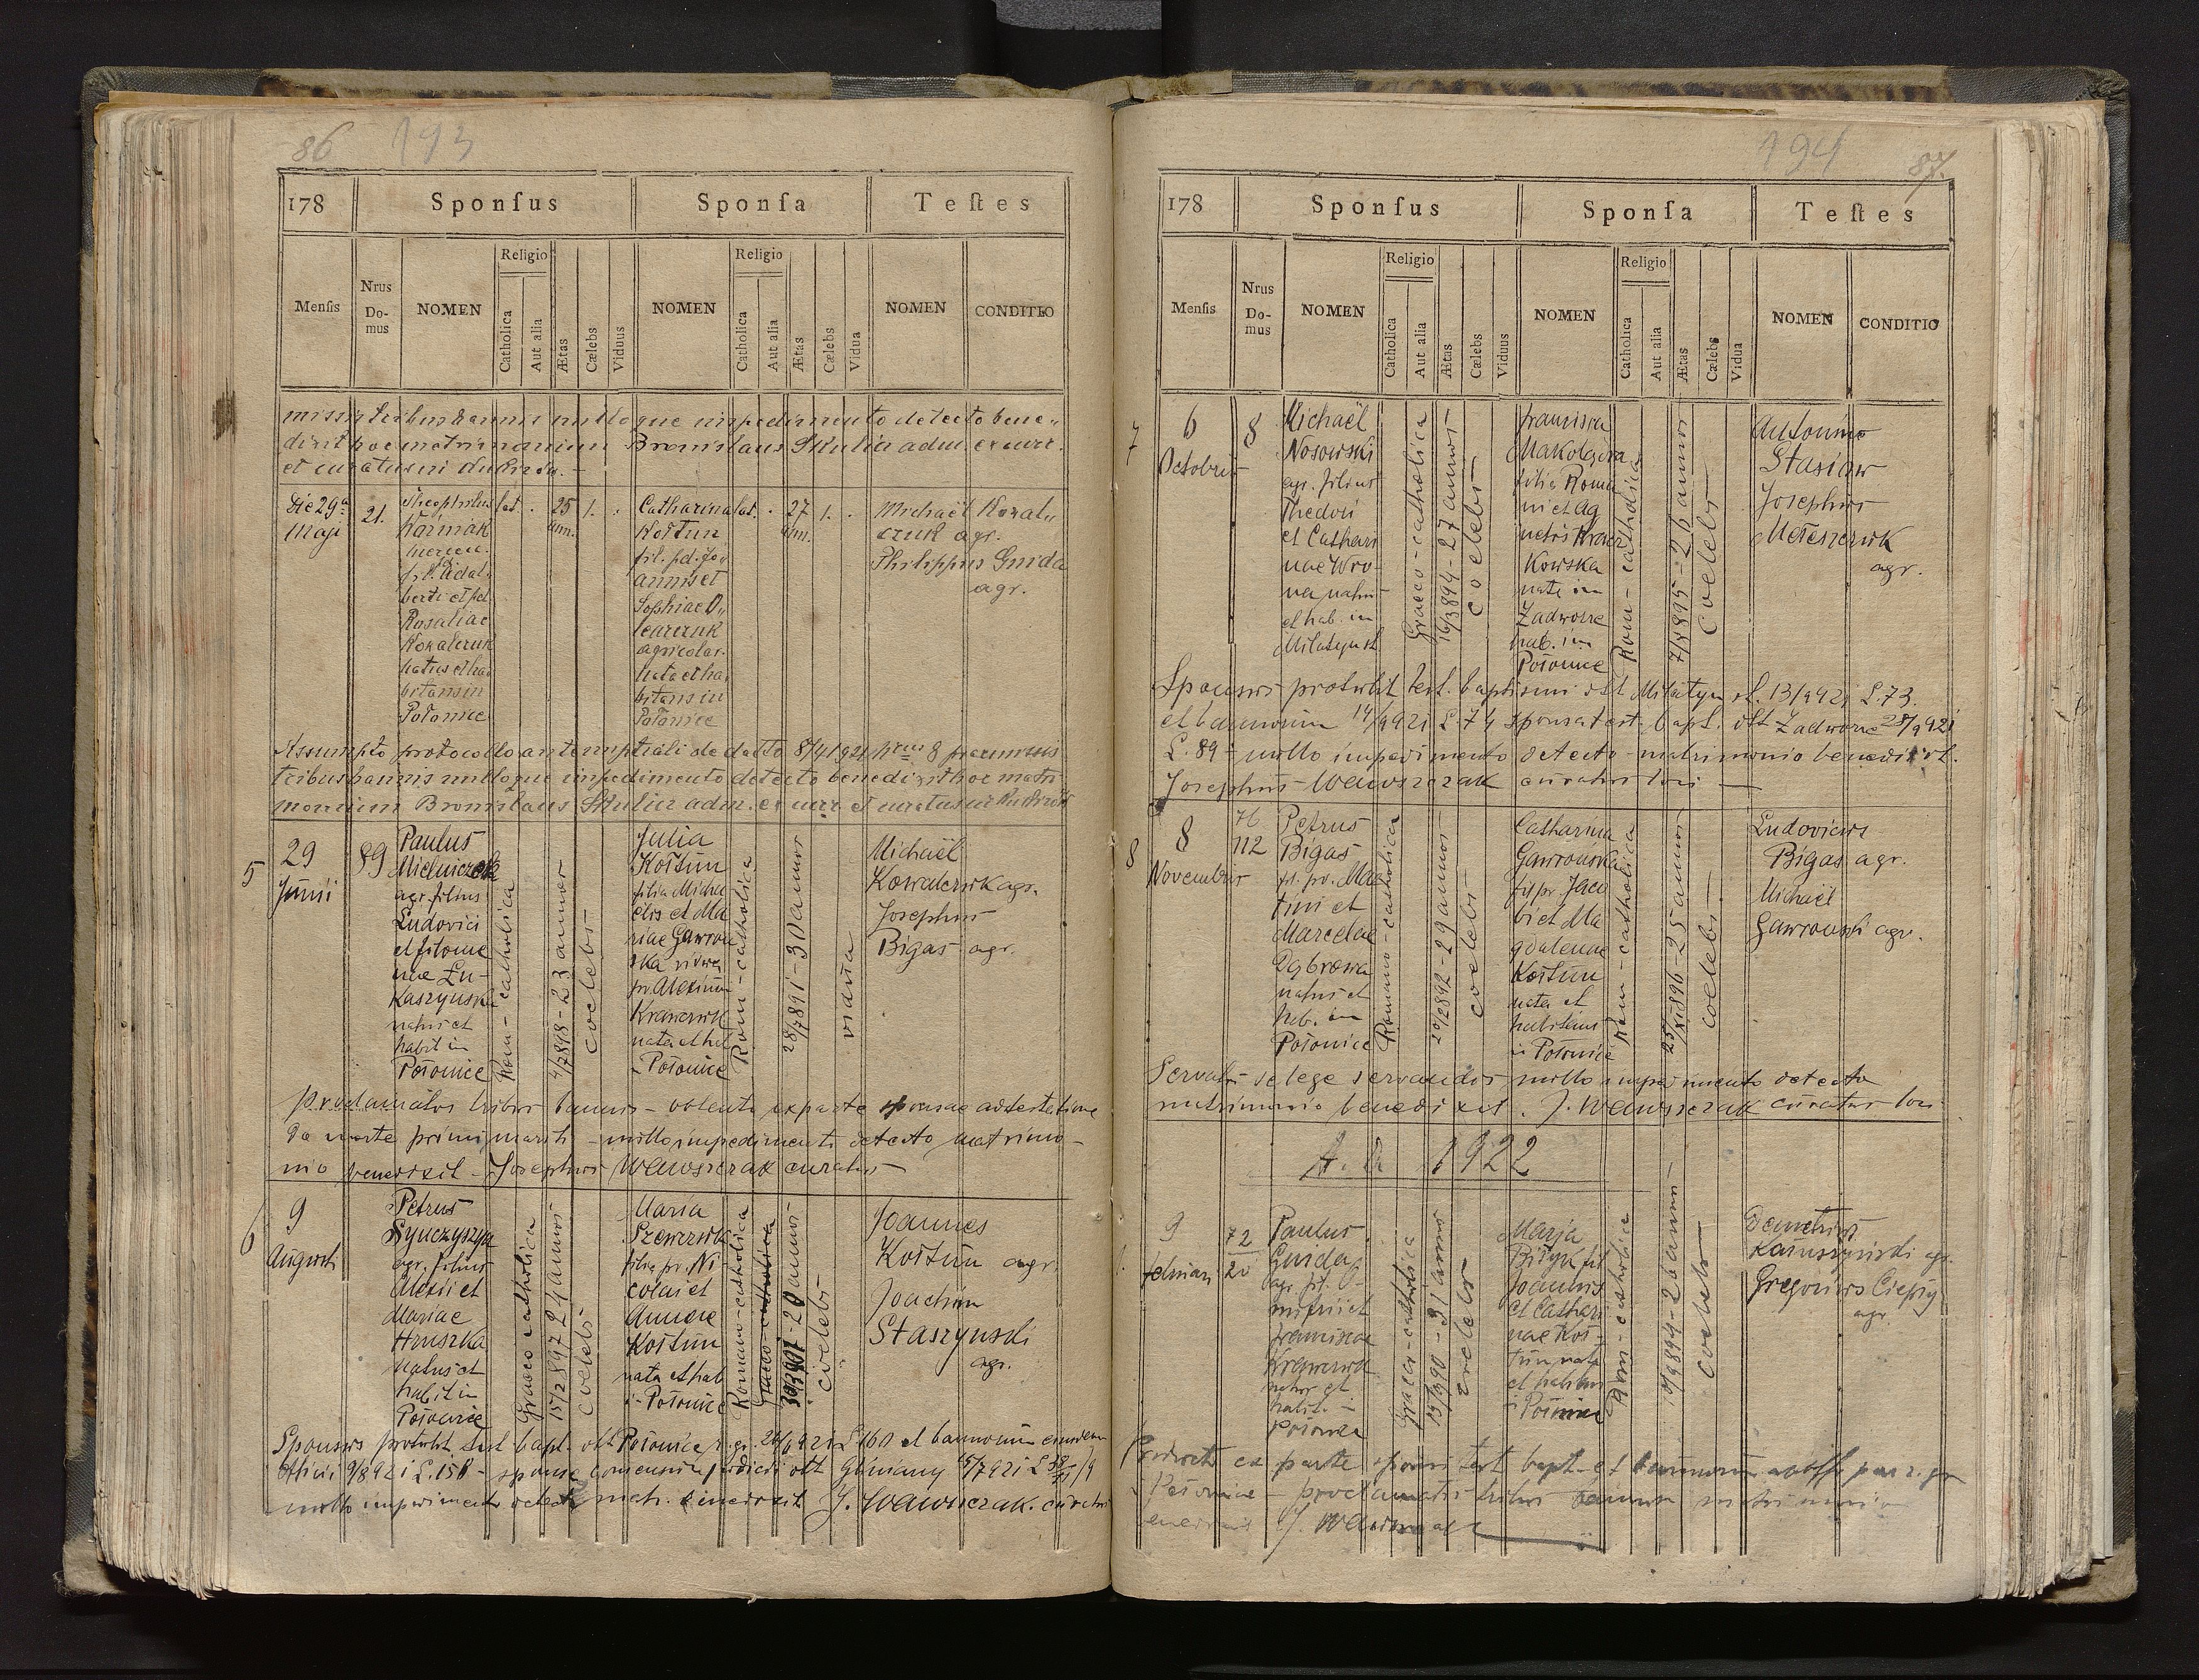 86 193
178 Sponſus Sponſa Teſtes
Menſis Nrus Do- mus NOMEN Religio Catholica Aut alia Ætas Cælebs Viduus NOMEN Religio Catholica Aut alia Ætas Cælebs Vidua NOMEN CONDITIO
missis tribus bannis nulloque impedimento detecto bene„
dixit hoc matrimonium Bronislaus Skulicz adm. ex curr.
et curatus in
Die 29a
Maji
21.
Theophilus
Kaźmak
fil. Adal„
berti et pd.
Rosaliae
Kowalczuk
natus et ha„
bitans in
Połonice
lat. . 25 ann. 1. .
Catharina
Kołtun
fil. pd. Jo„
annis et
Sophiae O„
learczuk
agricolar.
nata et ha„
bitans in
Połonice
lat. . 27 ann. 1. .
Michaël Kowal„
czuk agr.
Philippus Gnida
agr.
Assumpto protocollo antenuptiali de datto 8/4 1921 Nrus 8 praemissis
tribus bannis nulloque impedimento detecto benedixit hoc matri„
monium Bronislaus Skulicz adm. ex curr. et curatus in
5
29
Junii
89
Paulus
Mielniczek
agr. filius
Ludovici
et Filome
nae Łu-
kaszynska
natus et
habit in
Połonice
Rom-catholica
4/7 898 - 23 annor
coelebs
Julia
Kołtun
filia Micha
ëlis et Ma
riae Gawron
ska vidua
p. Alexium
Krawczuk
nata et hab
in Połonice
Rom-catholica
28/7 891 - 30 annor
vidua
Michaël
Kowalczuk agr.
Josephus
Bigas agr.
Proclamatis tribus bannis - obtenta ex parte sponsae adtestatione
de morte primi mariti - nullo impedimento detecto matrimo-
nio benedixit - Josephus Wawszczak curatus -
6
9
Augusti
Petrus
Synczyszyn
agr. filius
Alexii et
Mariae
Hruszka
natus et
habit in
Połonice
Graeco catholica
15/2 897 24 annor
coelebs
Maria
Szewczuk
filia p. Ni-
colai et
Annae
Kołtun
nata et hab
in Połonice
Romano-catholica
Graeco-catholica
30/3 901 - 20 annor
coelebs
Joannes
Kołtun agr.
Joachim
Staszynski
agr.
Sponsus protulit test. bapt. off Połonice r. gr. 26/6 921 L 160 et bannorum eiusdem
Officii 9/8 921 L. 158 - sponsa consensum judicii off Gliniany 5/7 921 L
nullo impedimento detecto matr. benedixit J. Wawszczak. curatus
194 87.
178 Sponſus Sponſa Teſtes
Menſis Nrus Do- mus NOMEN Religio Catholica Aut alia Ætas Cælebs Viduus NOMEN Religio Catholica Aut alia Ætas Cælebs Vidua NOMEN CONDITIO
7
6
Octobris
8
Michaël
Nosowski
agr. filius
Thedori
et Cathari
nae Wro-
na natus
et hab. in
Milatyn st
Graeco-catholica
16/3 894 - 27 annor
coelebs
Francisca
Makolągwa
filia Roma
ni et Ag
netis Kracz
kowska
nata in
Zadworze
hab. in
Połonice
Rom-catholica
7/4 895 - 26 annor
coelebs
Antonius
Stasiow
Josephus
Mełeszczuk
agr.
Sponsus protulit test. baptismi off Milatyn st. 13/9 921 L. 73.
et bannorum 14/9 921 L. 74 sponsa test. bapt. off Zadworze 28/9 921
L. 89 - nullo impedimento detecto - matrimonio benedixit.
Josephus - Wawszczak curatus loci -
8
8
Novembris
76
112
Petrus
Bigas
fil. p. Mar
tini et
Marcelae
Dąbrowa
natus et
hab. in
Połonice
Romano-catholica
20/2 892 - 29 annor
coelebs
Catharina
Gawrońska
fil p Jaco
bi et Ma
gdalenae
Kołtun
nata et
habitans
in Połonice
Rom-catholica
25/XI 896 - 25 annor
coelebs
Ludovicus
Bigas agr.
Michaël
Gawronski agr.
Servatis de lege servandis nullo impedimento detecto
matrimonio benedixit. J. Wawszczak curatus loci
A. D. 1922
9
februari
72
20
Paulus
Gnida
agr. fil. D-
mitrii et
Franciscae
Krawczuk
natus et
habit. in
Połonice
Graeco-catholica
15/3 90 - 31 annor
coelebs
Marja
Biłyk fil
Joannis
et Cathari
nae Koł-
tun nata
et habitans
in Połonice
Rom-catholica
10/9 894 - 26 annor
coelebs
Demetrius
Kałuszynski agr.
Gregorius Ciepły
agr.
Producto ex parte sponsi test bapt. et bannorum ab off par r. gr
in Połonice - proclamatis tribus bannis matrimonio
benedixit J. Wawszczak